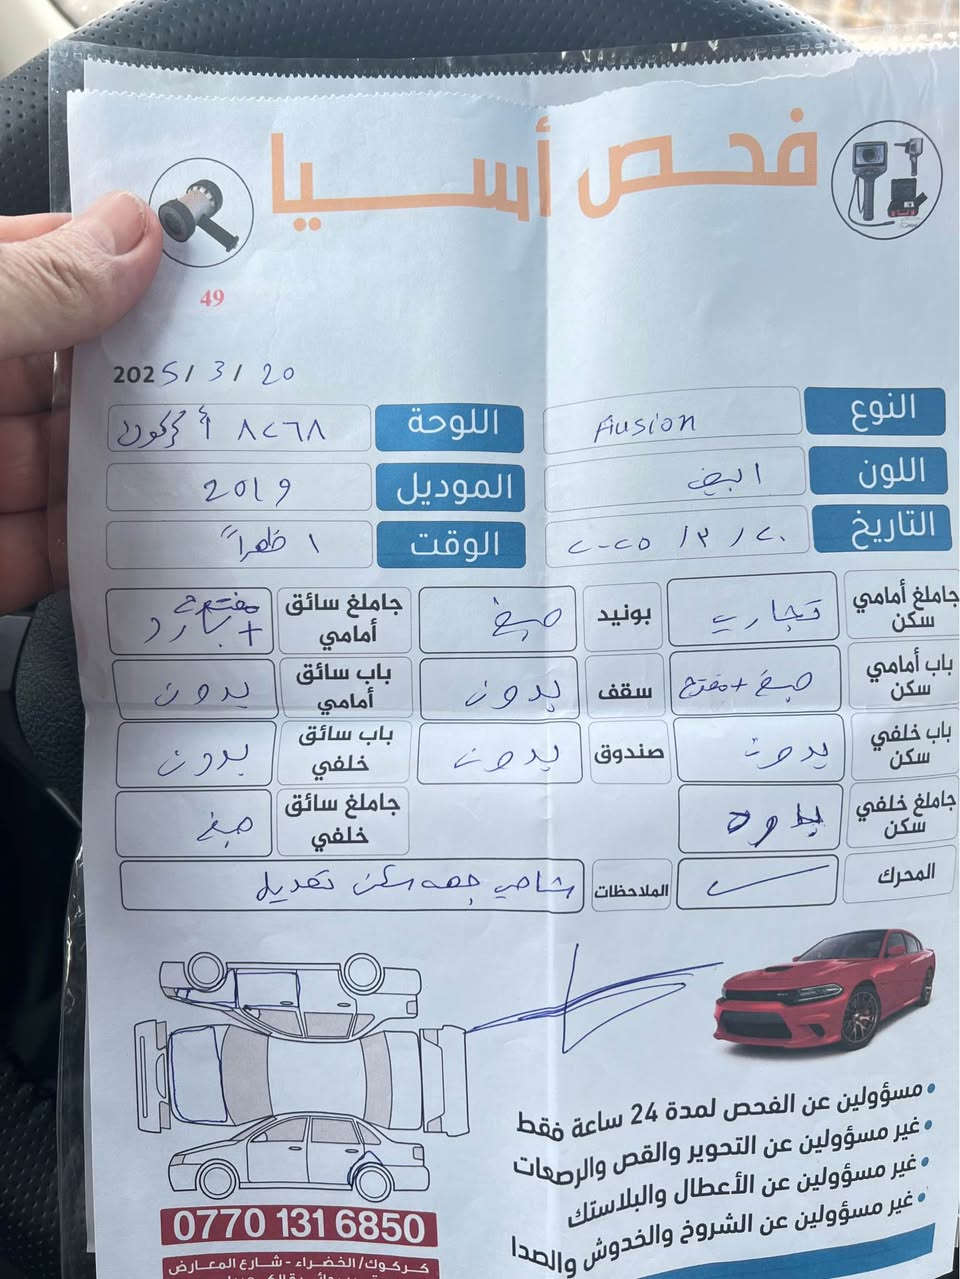 فحص أسيا
49
2025/3/20
النوع Fiusion اللوحة ٨٢٦٨ أ كركوك
اللون ابيض الموديل 2019
التاريخ ٢٠٢٥/٣/٢٠ الوقت ١ ظهراً
جاملغ أمامي سكن تجاري بونيد صبغ جاملغ سائق أمامي مفتوح + بارد
باب أمامي سكن صبغ + مفتوح سقف بدون باب سائق أمامي بدون
باب خلفي سكن بدون صندوق بدون باب سائق خلفي بدون
جاملغ خلفي سكن بدون جاملغ سائق خلفي صبغ
المحرك ✓ الملاحظات شاصي جهه سكن تعديل
• مسؤولين عن الفحص لمدة 24 ساعة فقط
• غير مسؤولين عن التحوير والقص والرصعات
• غير مسؤولين عن الأعطال والبلاستك
• غير مسؤولين عن الشروخ والخدوش والصدا
0770 131 6850
كركوك/ الخضراء - شارع المعارض